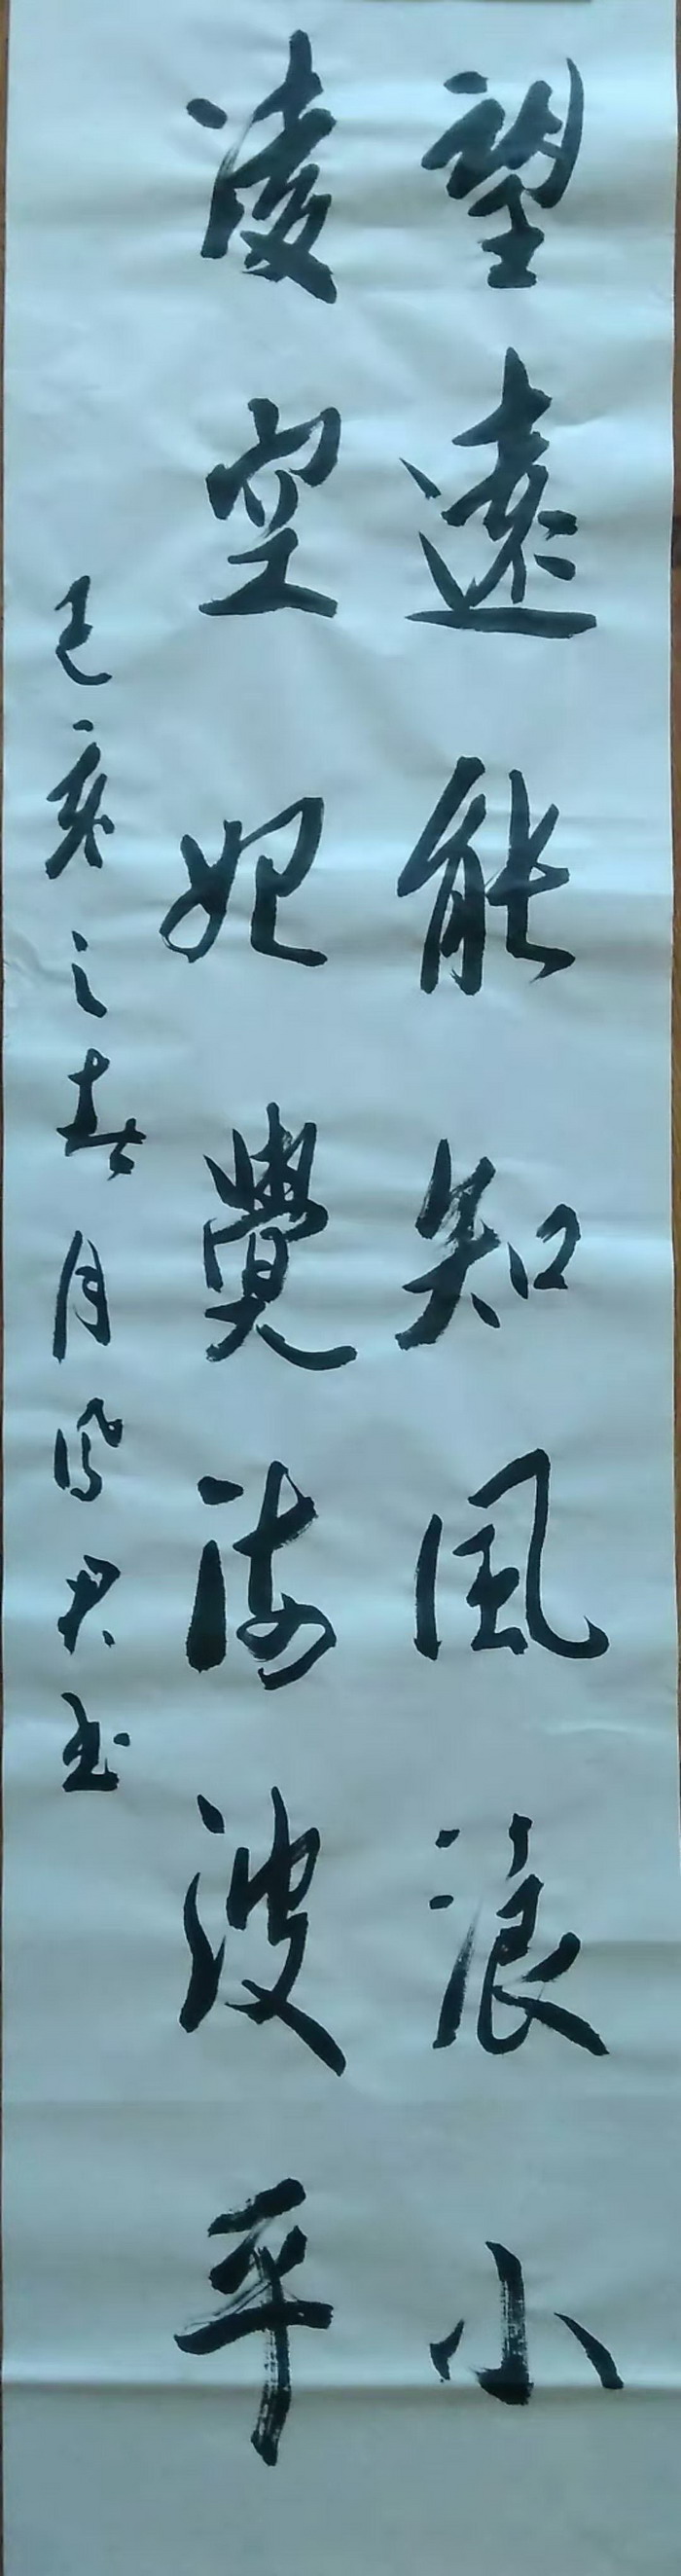 望遠能知風浪小
凌空妃覺海波平
己亥之春月風君书